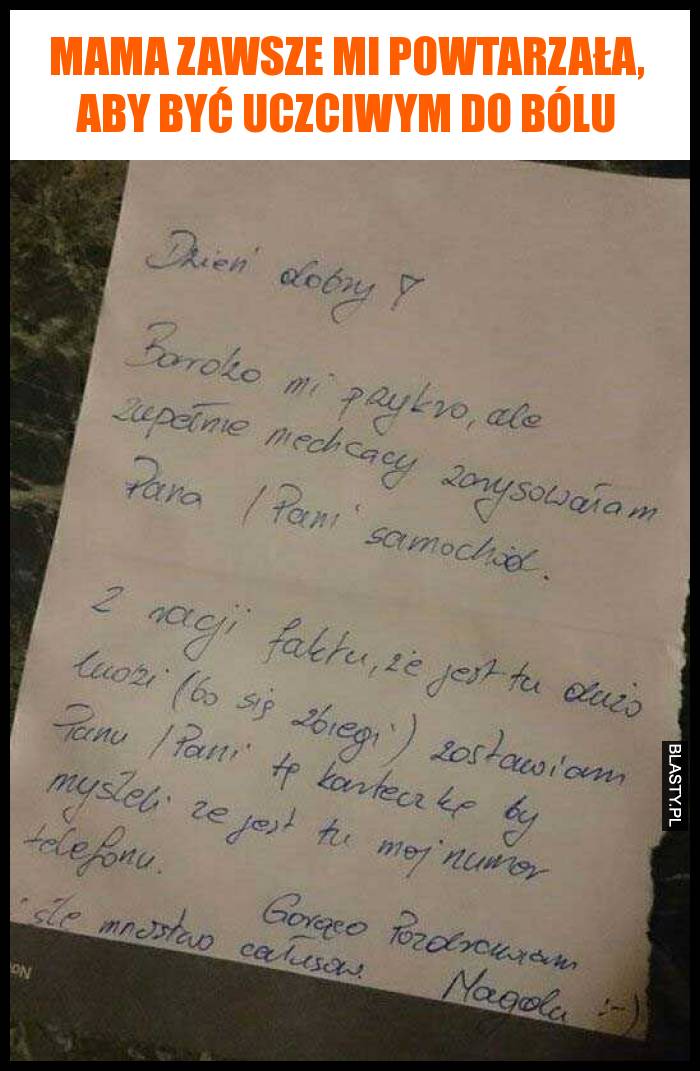 MAMA ZAWSZE MI POWTARZAŁA,
ABY BYĆ UCZCIWYM DO BÓLU
Dzień dobry!
Bardzo mi przykro, ale
zupełnie niechcący zarysowałam
Pana / Pani samochód.
Z racji faktu, że jest tu dużo
ludzi (bo się zbiegi) zostawiam
Panu / Pani tę karteczkę by
myśleli ze jest tu mój numer
telefonu.
Gorąco Pozdrawiam
i śle mnóstwo całusów.
Magda :-)
BLASTY.PL
ON